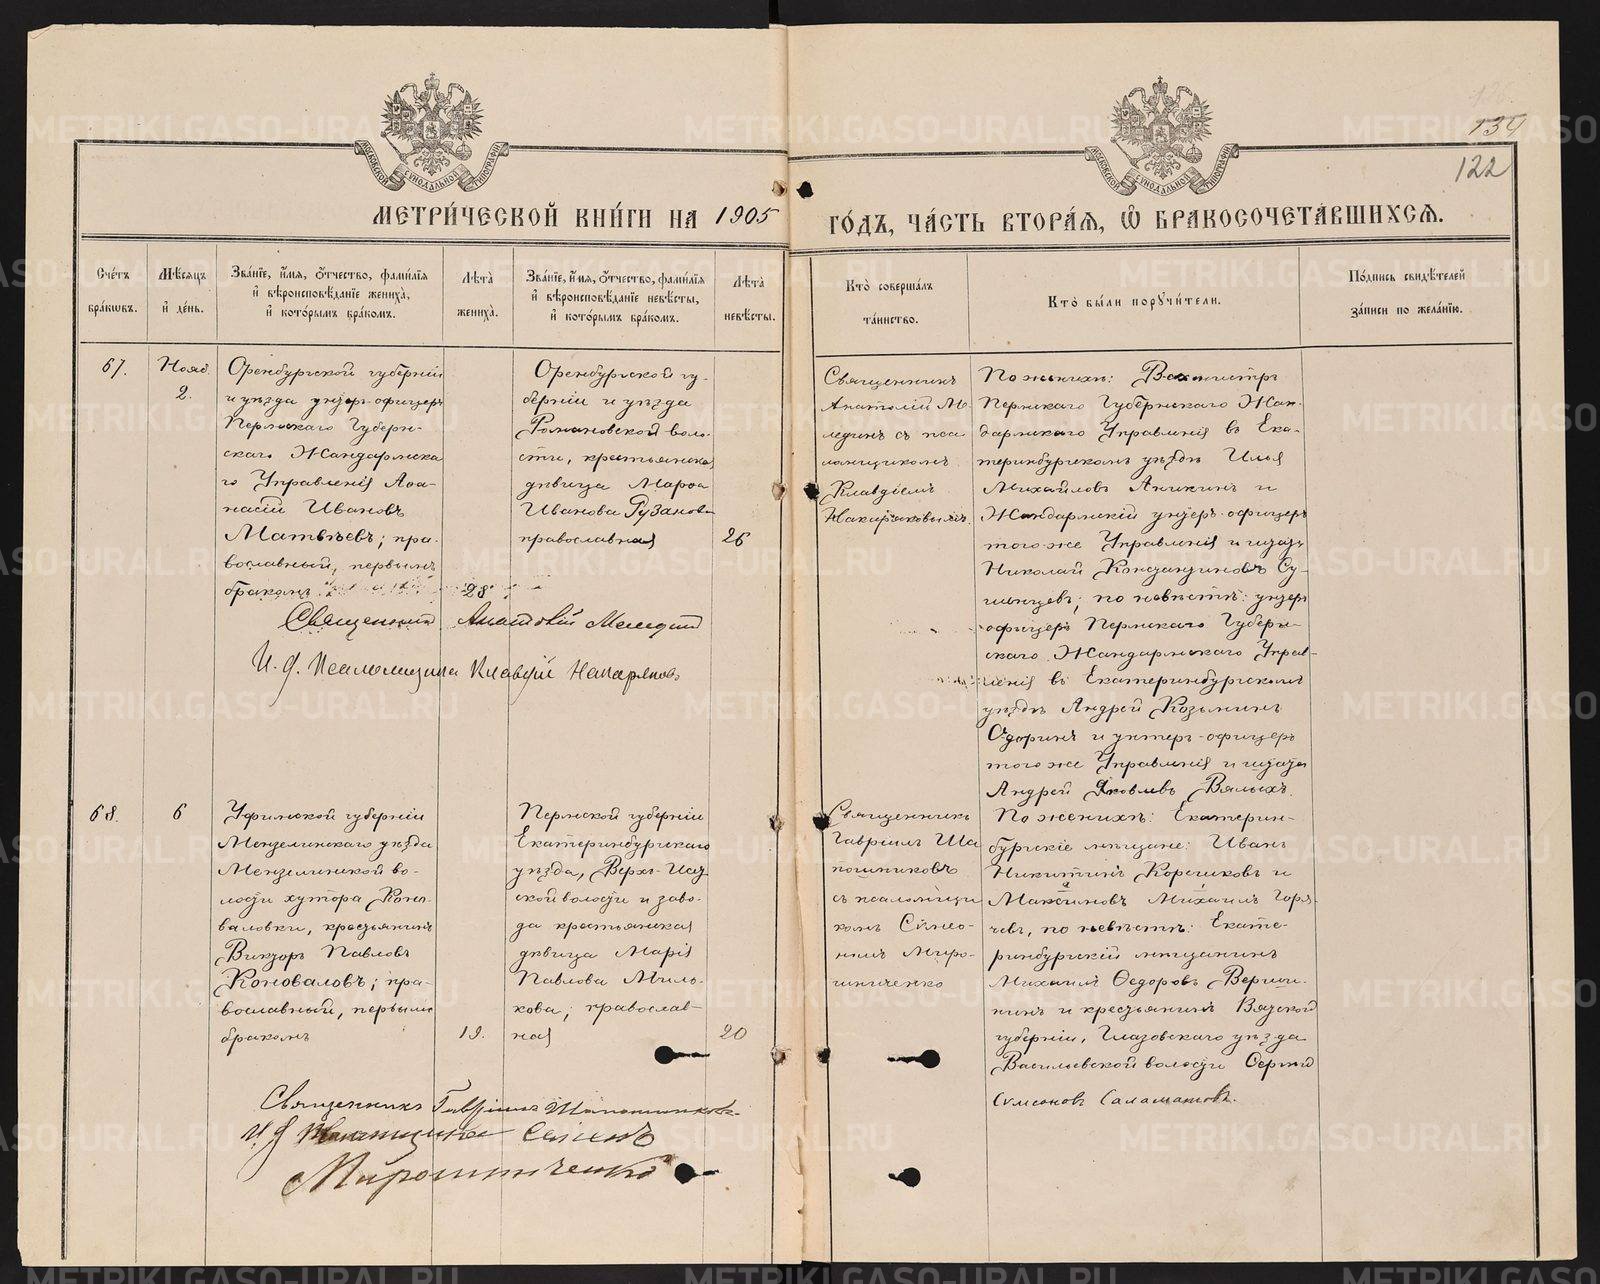 134
122
МЕТРИ́ЧЕСКОЙ КНИ́ГИ НА 1905
ГО́ДЪ, ЧА́СТЬ ВТОРА́Я, Ѽ БРАКОСОЧЕТА́ВШИХСѦ.
МОСКОВСКОЙ СУНОДАЛЬНОЙ ТИПОГРАФІИ
МОСКОВСКОЙ СУНОДАЛЬНОЙ ТИПОГРАФІИ
Сче́тъ
бра́кѡвъ.
Мѣ́сяцъ
и҆ де́нь.
Зва́нїе, и҆́мя, ѻ҆́тчество, фами́лїя
и҆ вѣроисповѣ́данїе жениха̀,
и҆ кото́рымъ бра́комъ.
Лѣ́та̀
жениха̀.
Зва́нїе, и҆́мя, ѻ҆́тчество, фами́лїя
и҆ вѣроисповѣ́данїе невѣ́сты,
и҆ кото́рымъ бра́комъ.
Лѣ́та̀
невѣ́сты.
Кто̀ соверша́лъ
та́инство.
Кто̀ бы́ли порꙋчи́тели.
По́дпись свидѣ́телей
за́писи по жела́нїю.
67.
Нояб.
2.
Оренбургской губерніи
и уѣзда унтеръ-офицеръ
Пермскаго Губерн-
скаго Жандармска
го Управленія Аѳа-
насій Ивановъ
Матвѣевъ; пра-
вославный, первымъ
бракомъ
28
Оренбургской гу-
берніи и уѣзда
Романовской воло-
сти, крестьянская
дѣвица Марѳа
Иванова Рузанова
православная
26
Священникъ
Анатолій Ме
лединъ съ пса
ломщикомъ
Клавдіемъ
Накаряковымъ.
По женихѣ: Вахмистръ
Пермскаго Губернскаго Жан-
дармскаго Управленія въ Ека-
теринбургскомъ уѣздѣ Илья
Михайловъ Аникинъ и
Жандармскій унтеръ-офицеръ
того же Управленія и уѣзда
Николай Константиновъ Су-
по невѣстѣ: унтеръ
офицеръ Пермскаго Губерн-
скаго Жандармскаго Управ-
ленія въ Екатеринбургскомъ
уѣздѣ Андрей Козьминъ
и унтеръ-офицеръ
того же Управленія и уѣзда
Андрей Яковлевъ Вялыхъ.
Священникъ Анатолій Меледин
И. д. Псаломщика Клавдій Накаряковъ
68.
6
Уфимской губерніи
Мензелинскаго уѣзда
Мензелинской во-
лости хутора Коно-
валовки, крестьянинъ
Викторъ Павловъ
Коноваловъ; пра-
вославный, первымъ
бракомъ
19.
Пермской губерніи
Екатеринбургскаго
уѣзда, Верхъ-Исет
ской волости и заво-
да крестьянская
дѣвица Марія
Павлова Миль-
кова; православ-
ная
20
Священникъ
Гавріилъ Ша
пошниковъ
съ псаломщи
комъ Симео-
номъ Миро-
шниченко
По женихѣ: Екатерин-
бургскіе мѣщане: Иванъ
Никитинъ Корчиковъ и
Максимовъ Михаилъ Горя-
чевъ, по невѣстѣ: Екате-
ринбургскій мѣщанинъ
Михаилъ Ѳедоровъ Верши-
нинъ и крестьянинъ Вятской
губерніи, Глазовскаго уѣзда
Васильевской волости Сергѣй
Симеоновъ Саламатовъ.
Священникъ Гавріилъ Шапошниковъ.
И. д. Псаломщика Симеонъ
Мирошниченко
METRIKI.GASO-URAL.RU